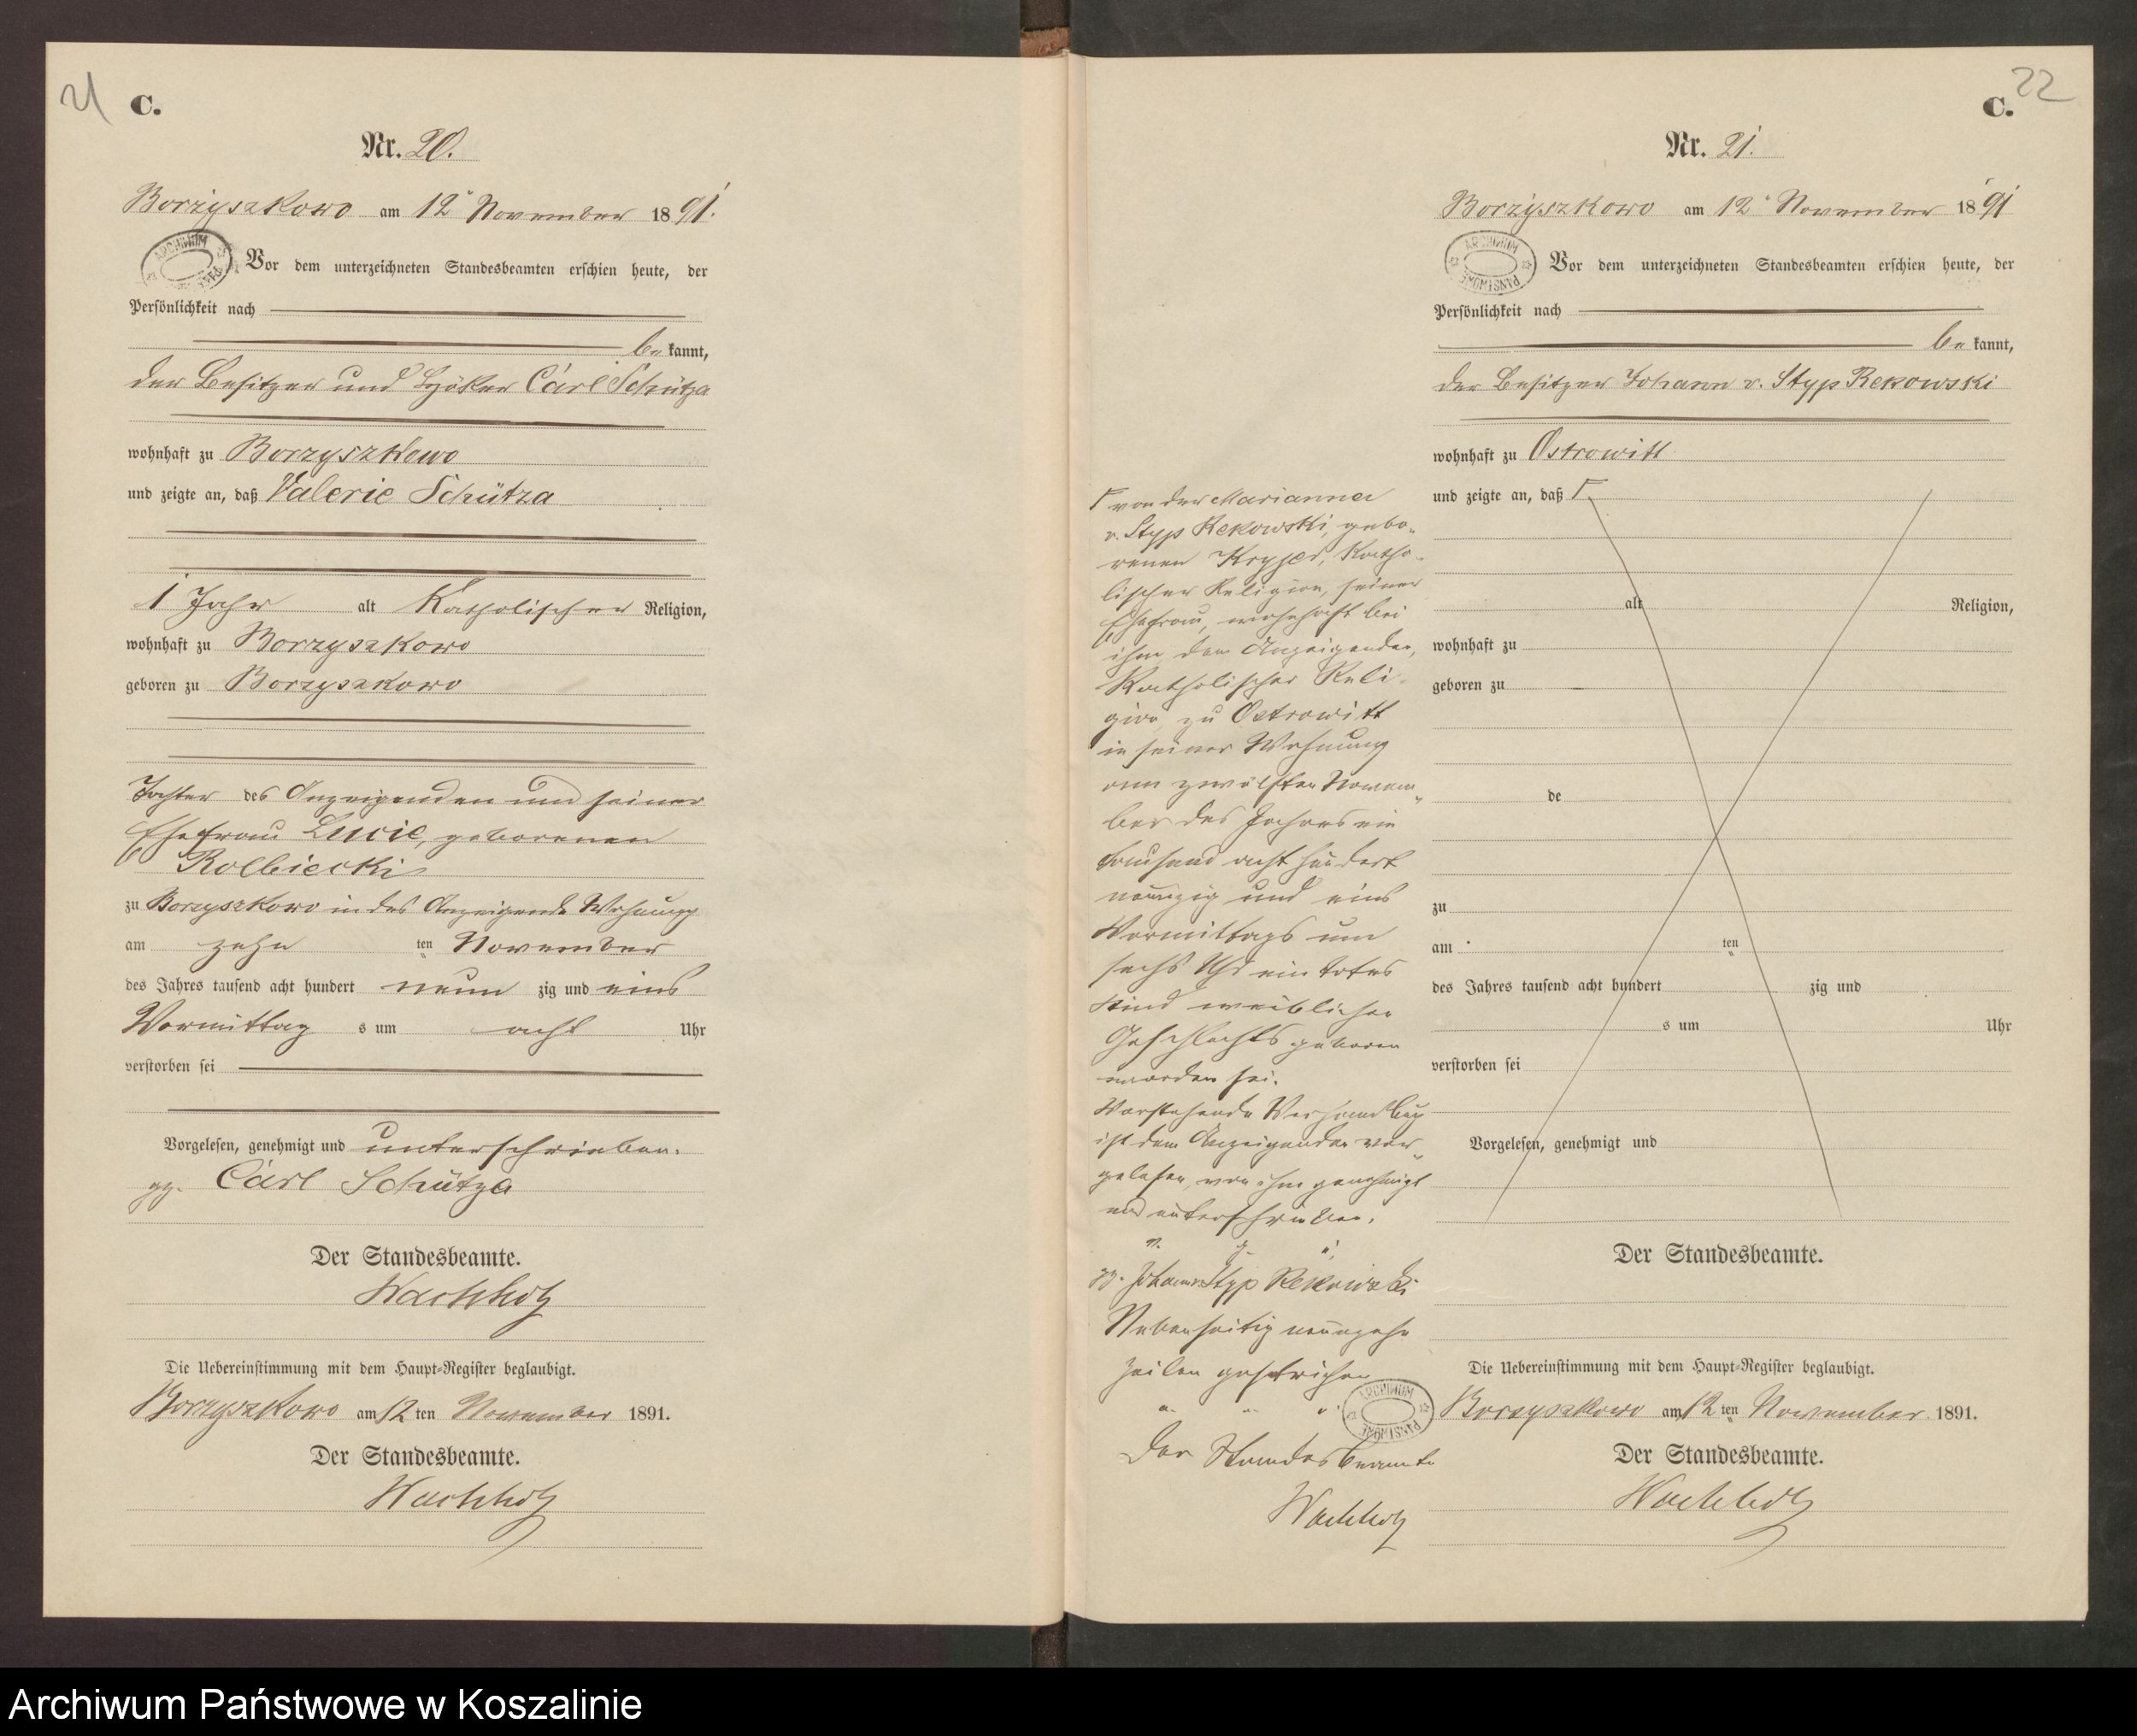 21
C.
Nr. 20.
Borzyszkowo am 12 November 1891.
Vor dem unterzeichneten Standesbeamten erschien heute, der
Persönlichkeit nach
be kannt,
der Besitzer und Höker Carl Schütza
wohnhaft zu Borzyszkowo
und zeigte an, daß Valerie Schütza
1 Jahr alt Katholischer Religion,
wohnhaft zu Borzyszkowo
geboren zu Borzyszkowo
Tochter des Anzeigenden und seiner
Ehefrau Lucie, geborenen
Rolbiecki
zu Borzyszkowo in des Anzeigende Wohnung
am zehn ten November
des Jahres tausend acht hundert neun zig und eins
Vormittag s um acht Uhr
verstorben sei
Vorgelesen, genehmigt und unterschrieben.
gz. Carl Schütza
Der Standesbeamte.
Wachholz
Die Uebereinstimmung mit dem Haupt-Register beglaubigt.
Borzyszkowo am 12 ten November 1891.
Der Standesbeamte.
Wachholz
22
C.
Nr. 21.
Borzyszkowo am 12 November 1891
ARCHIWUM PAŃSTWOWE
Vor dem unterzeichneten Standesbeamten erschien heute, der
Persönlichkeit nach
be kannt,
der Besitzer Johann v. Styp Rekowski
wohnhaft zu Ostrowitt
und zeigte an, daß
alt Religion,
wohnhaft zu
geboren zu
de
zu
am ten
des Jahres tausend acht hundert zig und
s um Uhr
verstorben sei
Vorgelesen, genehmigt und
Der Standesbeamte.
Die Uebereinstimmung mit dem Haupt-Register beglaubigt.
Borzyszkowo am 12 ten November 1891.
Der Standesbeamte.
Wachholz
von der Marianna
v. Styp Rekowski, gebo-
renen, Katho-
lischer Religion, seiner
Ehefrau, wohnhaft bei
ihm dem Anzeigenden,
Katholischer Reli-
gion zu Ostrowitt
in seiner Wohnung
am zwölften Novem-
ber des Jahres ein
tausend acht hundert
neunzig und eins
Vormittags um
sechs Uhr ein totes
Kind weiblichen
Geschlechts geboren
worden sei.
Vorstehende Verhandlung
ist dem Anzeigenden vor-
gelesen, von ihm genehmigt
und unterschrieben.
v. g. u.
gz. Johann Styp Rekowski
Nebenseitig neunzehn
Zeilen gestrichen
ARCHIWUM PAŃSTWOWE
Der Standesbeamte
Wachholz
Archiwum Państwowe w Koszalinie